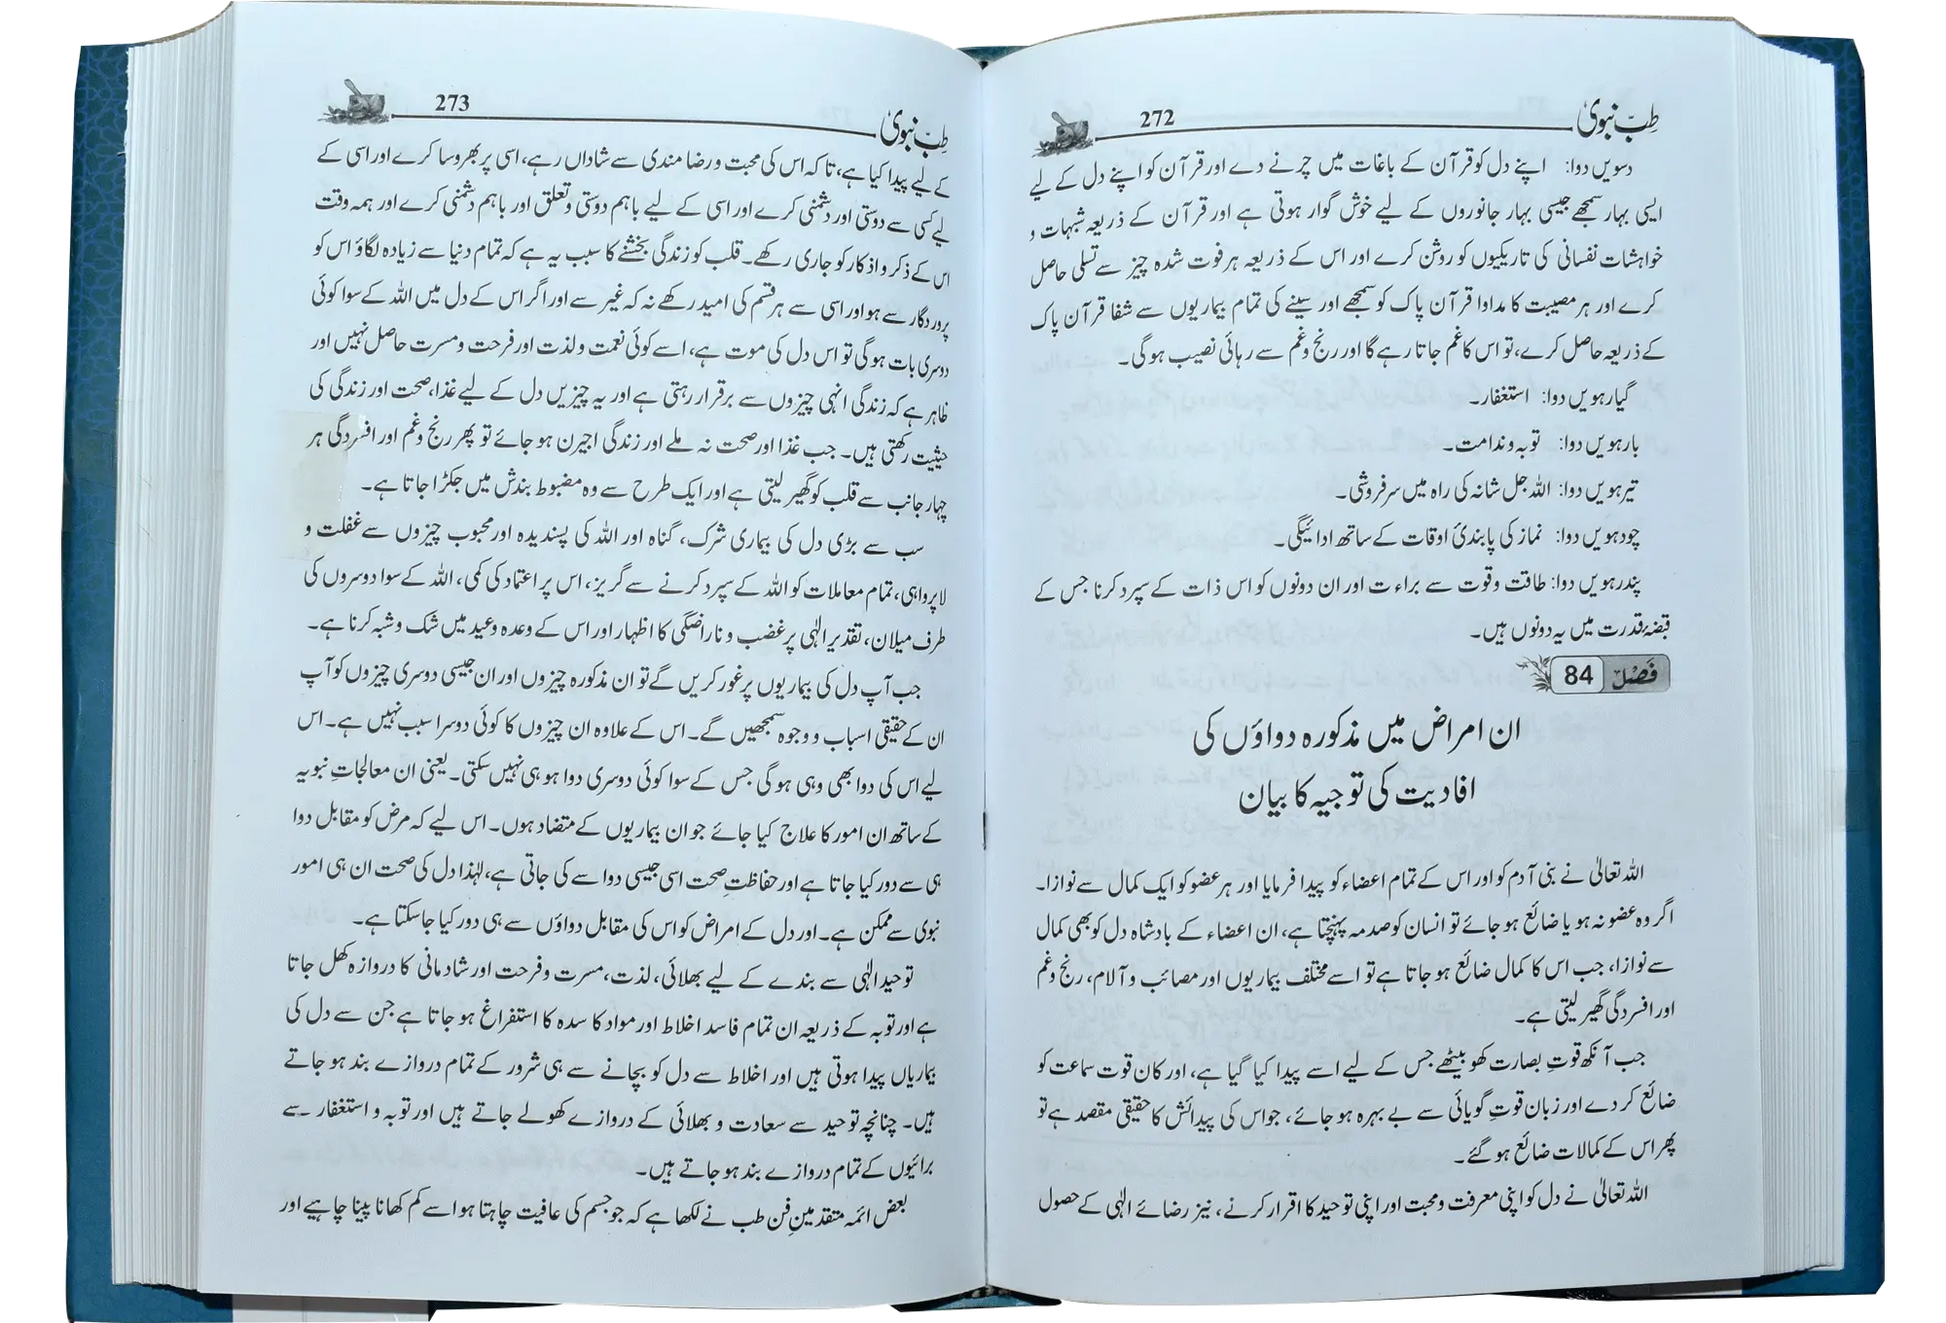 طِبِّ نبویؐ
272
دسویں دوا: اپنے دل کو قرآن کے باغات میں چرنے دے اور قرآن کو اپنے دل کے لیے
ایسی بہار سمجھے جیسی بہار جانوروں کے لیے خوش گوار ہوتی ہے اور قرآن کے ذریعہ شبہات و
خواہشات نفسانی کی تاریکیوں کو روشن کرے اور اس کے ذریعہ ہر فوت شدہ چیز سے تسلی حاصل
کرے اور ہر مصیبت کا مداوا قرآن پاک کو سمجھے اور سینے کی تمام بیماریوں سے شفا قرآن پاک
کے ذریعہ حاصل کرے، تو اس کا غم جاتا رہے گا اور رنج و غم سے رہائی نصیب ہوگی۔
گیارہویں دوا: استغفار۔
بارہویں دوا: توبہ و ندامت۔
تیرہویں دوا: اللہ جل شانہ کی راہ میں سرفروشی۔
چودہویں دوا: نماز کی پابندیٔ اوقات کے ساتھ ادائیگی۔
پندرہویں دوا: طاقت وقوت سے براءت اور ان دونوں کو اس ذات کے سپرد کرنا جس کے
قبضۂ قدرت میں یہ دونوں ہیں۔
فَصْل 84
ان امراض میں مذکورہ دواؤں کی
افادیت کی توجیہ کا بیان
اللہ تعالیٰ نے بنی آدم کو اور اس کے تمام اعضاء کو پیدا فرمایا اور ہر عضو کو ایک کمال سے نوازا۔
اگر وہ عضو نہ ہو یا ضائع ہو جائے تو انسان کو صدمہ پہنچتا ہے، ان اعضاء کے بادشاہ دل کو بھی کمال
سے نوازا، جب اس کا کمال ضائع ہو جاتا ہے تو اسے مختلف بیماریوں اور مصائب و آلام، رنج و غم
اور افسردگی گھیر لیتی ہے۔
جب آنکھ قوتِ بصارت کھو بیٹھے جس کے لیے اسے پیدا کیا گیا ہے، اور کان قوت سماعت کو
ضائع کر دے اور زبان قوتِ گویائی سے بے بہرہ ہو جائے، جو اس کی پیدائش کا حقیقی مقصد ہے تو
پھر اس کے کمالات ضائع ہو گئے۔
اللہ تعالیٰ نے دل کو اپنی معرفت و محبت اور اپنی توحید کا اقرار کرنے، نیز رضائے الٰہی کے حصول
طِبِّ نبویؐ
273
کے لیے پیدا کیا ہے، تاکہ اس کی محبت و رضا مندی سے شاداں رہے، اسی پر بھروسا کرے اور اسی کے
لیے کسی سے دوستی اور دشمنی کرے اور اسی کے لیے باہم دوستی و تعلق اور باہم دشمنی کرے اور ہمہ وقت
اس کے ذکر و اذکار کو جاری رکھے۔ قلب کو زندگی بخشنے کا سبب یہ ہے کہ تمام دنیا سے زیادہ لگاؤ اس کو
پروردگار سے ہو اور اسی سے ہر قسم کی امید رکھے نہ کہ غیر سے اور اگر اس کے دل میں اللہ کے سوا کوئی
دوسری بات ہوگی تو اس دل کی موت ہے، اسے کوئی نعمت و لذت اور فرحت و مسرت حاصل نہیں اور
ظاہر ہے کہ زندگی انہی چیزوں سے برقرار رہتی ہے اور یہ چیزیں دل کے لیے غذا، صحت اور زندگی کی
حیثیت رکھتی ہیں۔ جب غذا اور صحت نہ ملے اور زندگی اجیرن ہو جائے تو پھر رنج و غم اور افسردگی ہر
چہار جانب سے قلب کو گھیر لیتی ہے اور ایک طرح سے وہ مضبوط بندش میں جکڑا جاتا ہے۔
سب سے بڑی دل کی بیماری شرک، گناہ اور اللہ کی پسندیدہ اور محبوب چیزوں سے غفلت و
لاپرواہی، تمام معاملات کو اللہ کے سپرد کرنے سے گریز، اس پر اعتماد کی کمی، اللہ کے سوا دوسروں کی
طرف میلان، تقدیر الٰہی پر غضب و ناراضگی کا اظہار اور اس کے وعدہ وعید میں شک و شبہ کرنا ہے۔
جب آپ دل کی بیماریوں پر غور کریں گے تو ان مذکورہ چیزوں اور ان جیسی دوسری چیزوں کو آپ
ان کے حقیقی اسباب و وجوہ سمجھیں گے۔ اس کے علاوہ ان چیزوں کا کوئی دوسرا سبب نہیں ہے۔ اس
لیے اس کی دوا بھی وہی ہوگی جس کے سوا کوئی دوسری دوا ہو ہی نہیں سکتی۔ یعنی ان معالجاتِ نبویہ
کے ساتھ ان امور کا علاج کیا جائے جو ان بیماریوں کے متضاد ہوں۔ اس لیے کہ مرض کو مقابل دوا
ہی سے دور کیا جاتا ہے اور حفاظتِ صحت اسی جیسی دوا سے کی جاتی ہے، لہٰذا دل کی صحت ان ہی امور
نبوی سے ممکن ہے۔ اور دل کے امراض کو اس کی مقابل دواؤں سے ہی دور کیا جاسکتا ہے۔
توحید الٰہی سے بندے کے لیے بھلائی، لذت، مسرت و فرحت اور شادمانی کا دروازہ کھل جاتا
ہے اور توبہ کے ذریعہ ان تمام فاسد اخلاط اور مواد کا سدہ کا استفراغ ہو جاتا ہے جن سے دل کی
بیماریاں پیدا ہوتی ہیں اور اخلاط سے دل کو بچانے سے ہی شرور کے تمام دروازے بند ہو جاتے
ہیں۔ چنانچہ توحید سے سعادت و بھلائی کے دروازے کھولے جاتے ہیں اور توبہ و استغفار سے
برائیوں کے تمام دروازے بند ہو جاتے ہیں۔
بعض ائمہ متقدمینِ فن طب نے لکھا ہے کہ جو جسم کی عافیت چاہتا ہو اسے کم کھانا پینا چاہیے اور